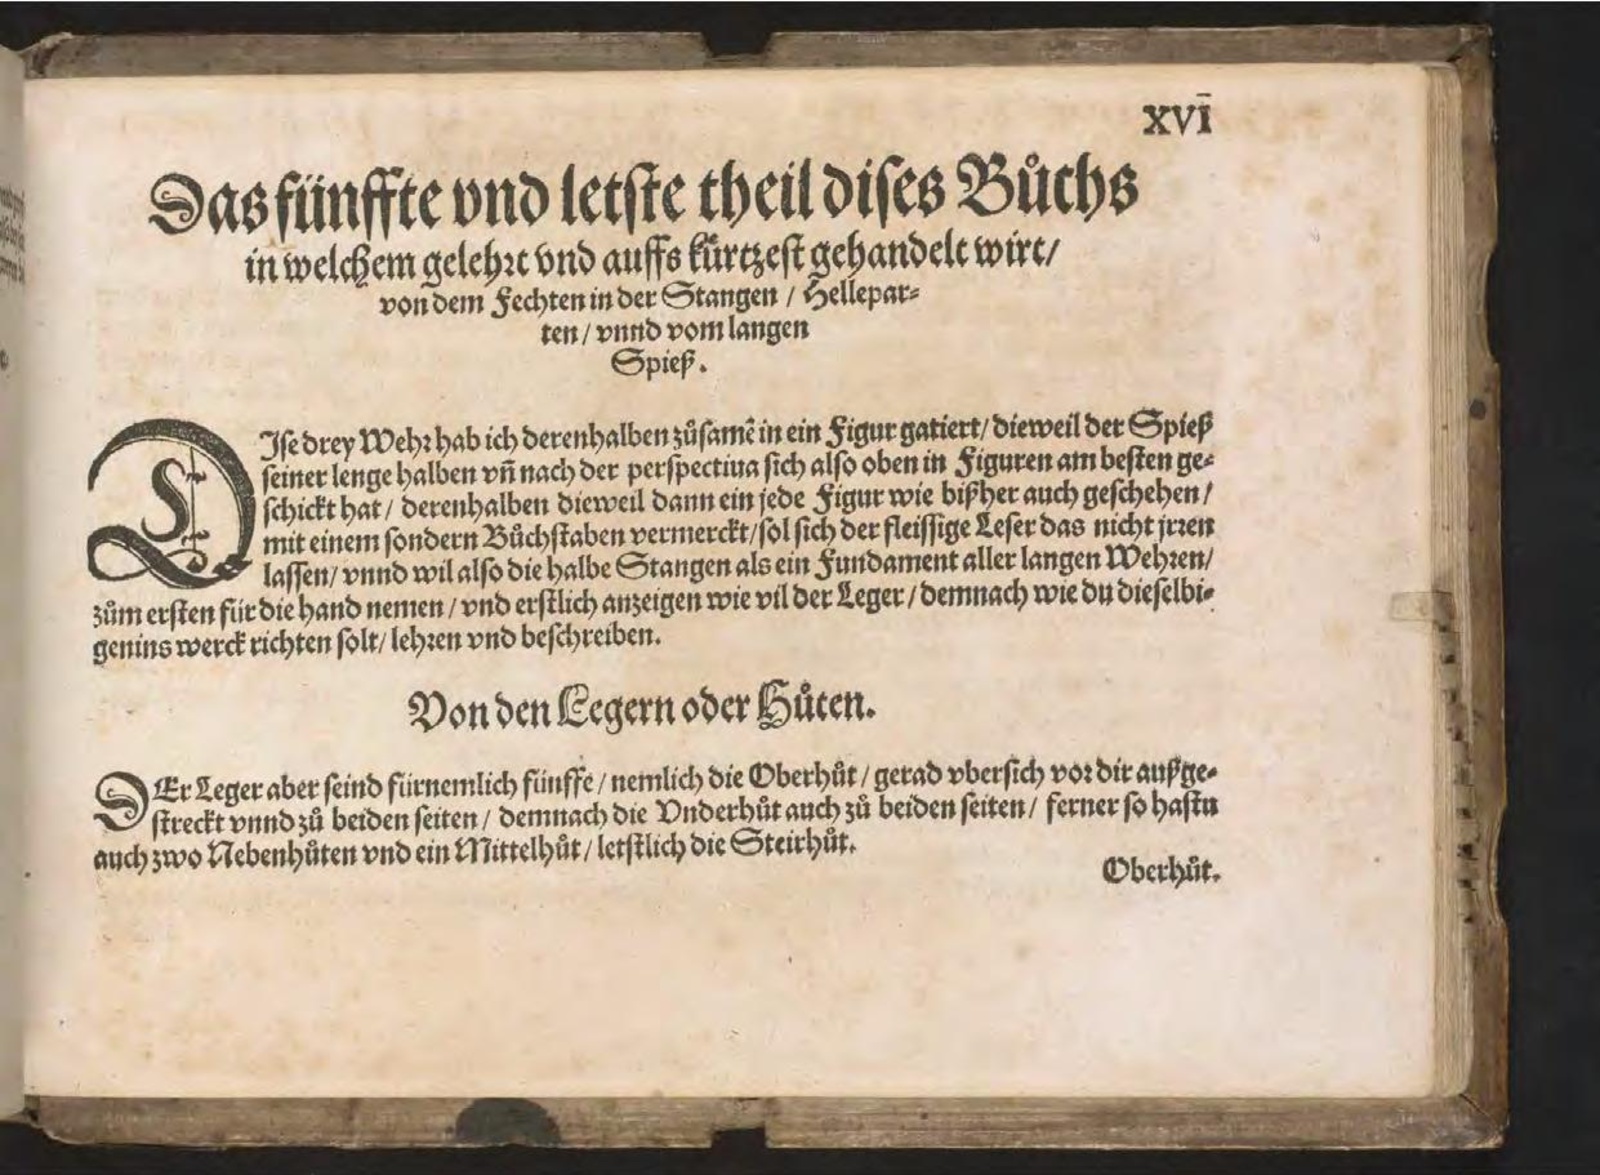 XVI
Das fünffte vnd letste theil dises Bůchs
in welchem gelehrt vnd auffs kürtzest gehandelt wirt/
von dem Fechten in der Stangen / Hellepar-
ten / vnnd vom langen
Spieß.
DIse drey Wehr hab ich derenhalben zůsamē in ein Figur gatiert/ dieweil der Spieß
seiner lenge halben vn̄ nach der perspectiua sich also oben in Figuren am besten ge-
schickt hat / derenhalben dieweil dann ein jede Figur wie bißher auch geschehen /
mit einem sondern Bůchstaben vermerckt / sol sich der fleissige Leser das nicht jrren
lassen / vnnd wil also die halbe Stangen als ein Fundament aller langen Wehren /
zům ersten für die hand nemen / vnd erstlich anzeigen wie vil der Leger / demnach wie du dieselbi-
gen ins werck richten solt / lehren vnd beschreiben.
Von den Legern oder Hůten.
DEr Leger aber seind fürnemlich fünffe / nemlich die Oberhůt / gerad vbersich vor dir außge-
streckt vnnd zů beiden seiten / demnach die Vnderhůt auch zů beiden seiten / ferner so hastu
auch zwo Nebenhůten vnd ein Mittelhůt / letstlich die Steirhůt.
Oberhůt.